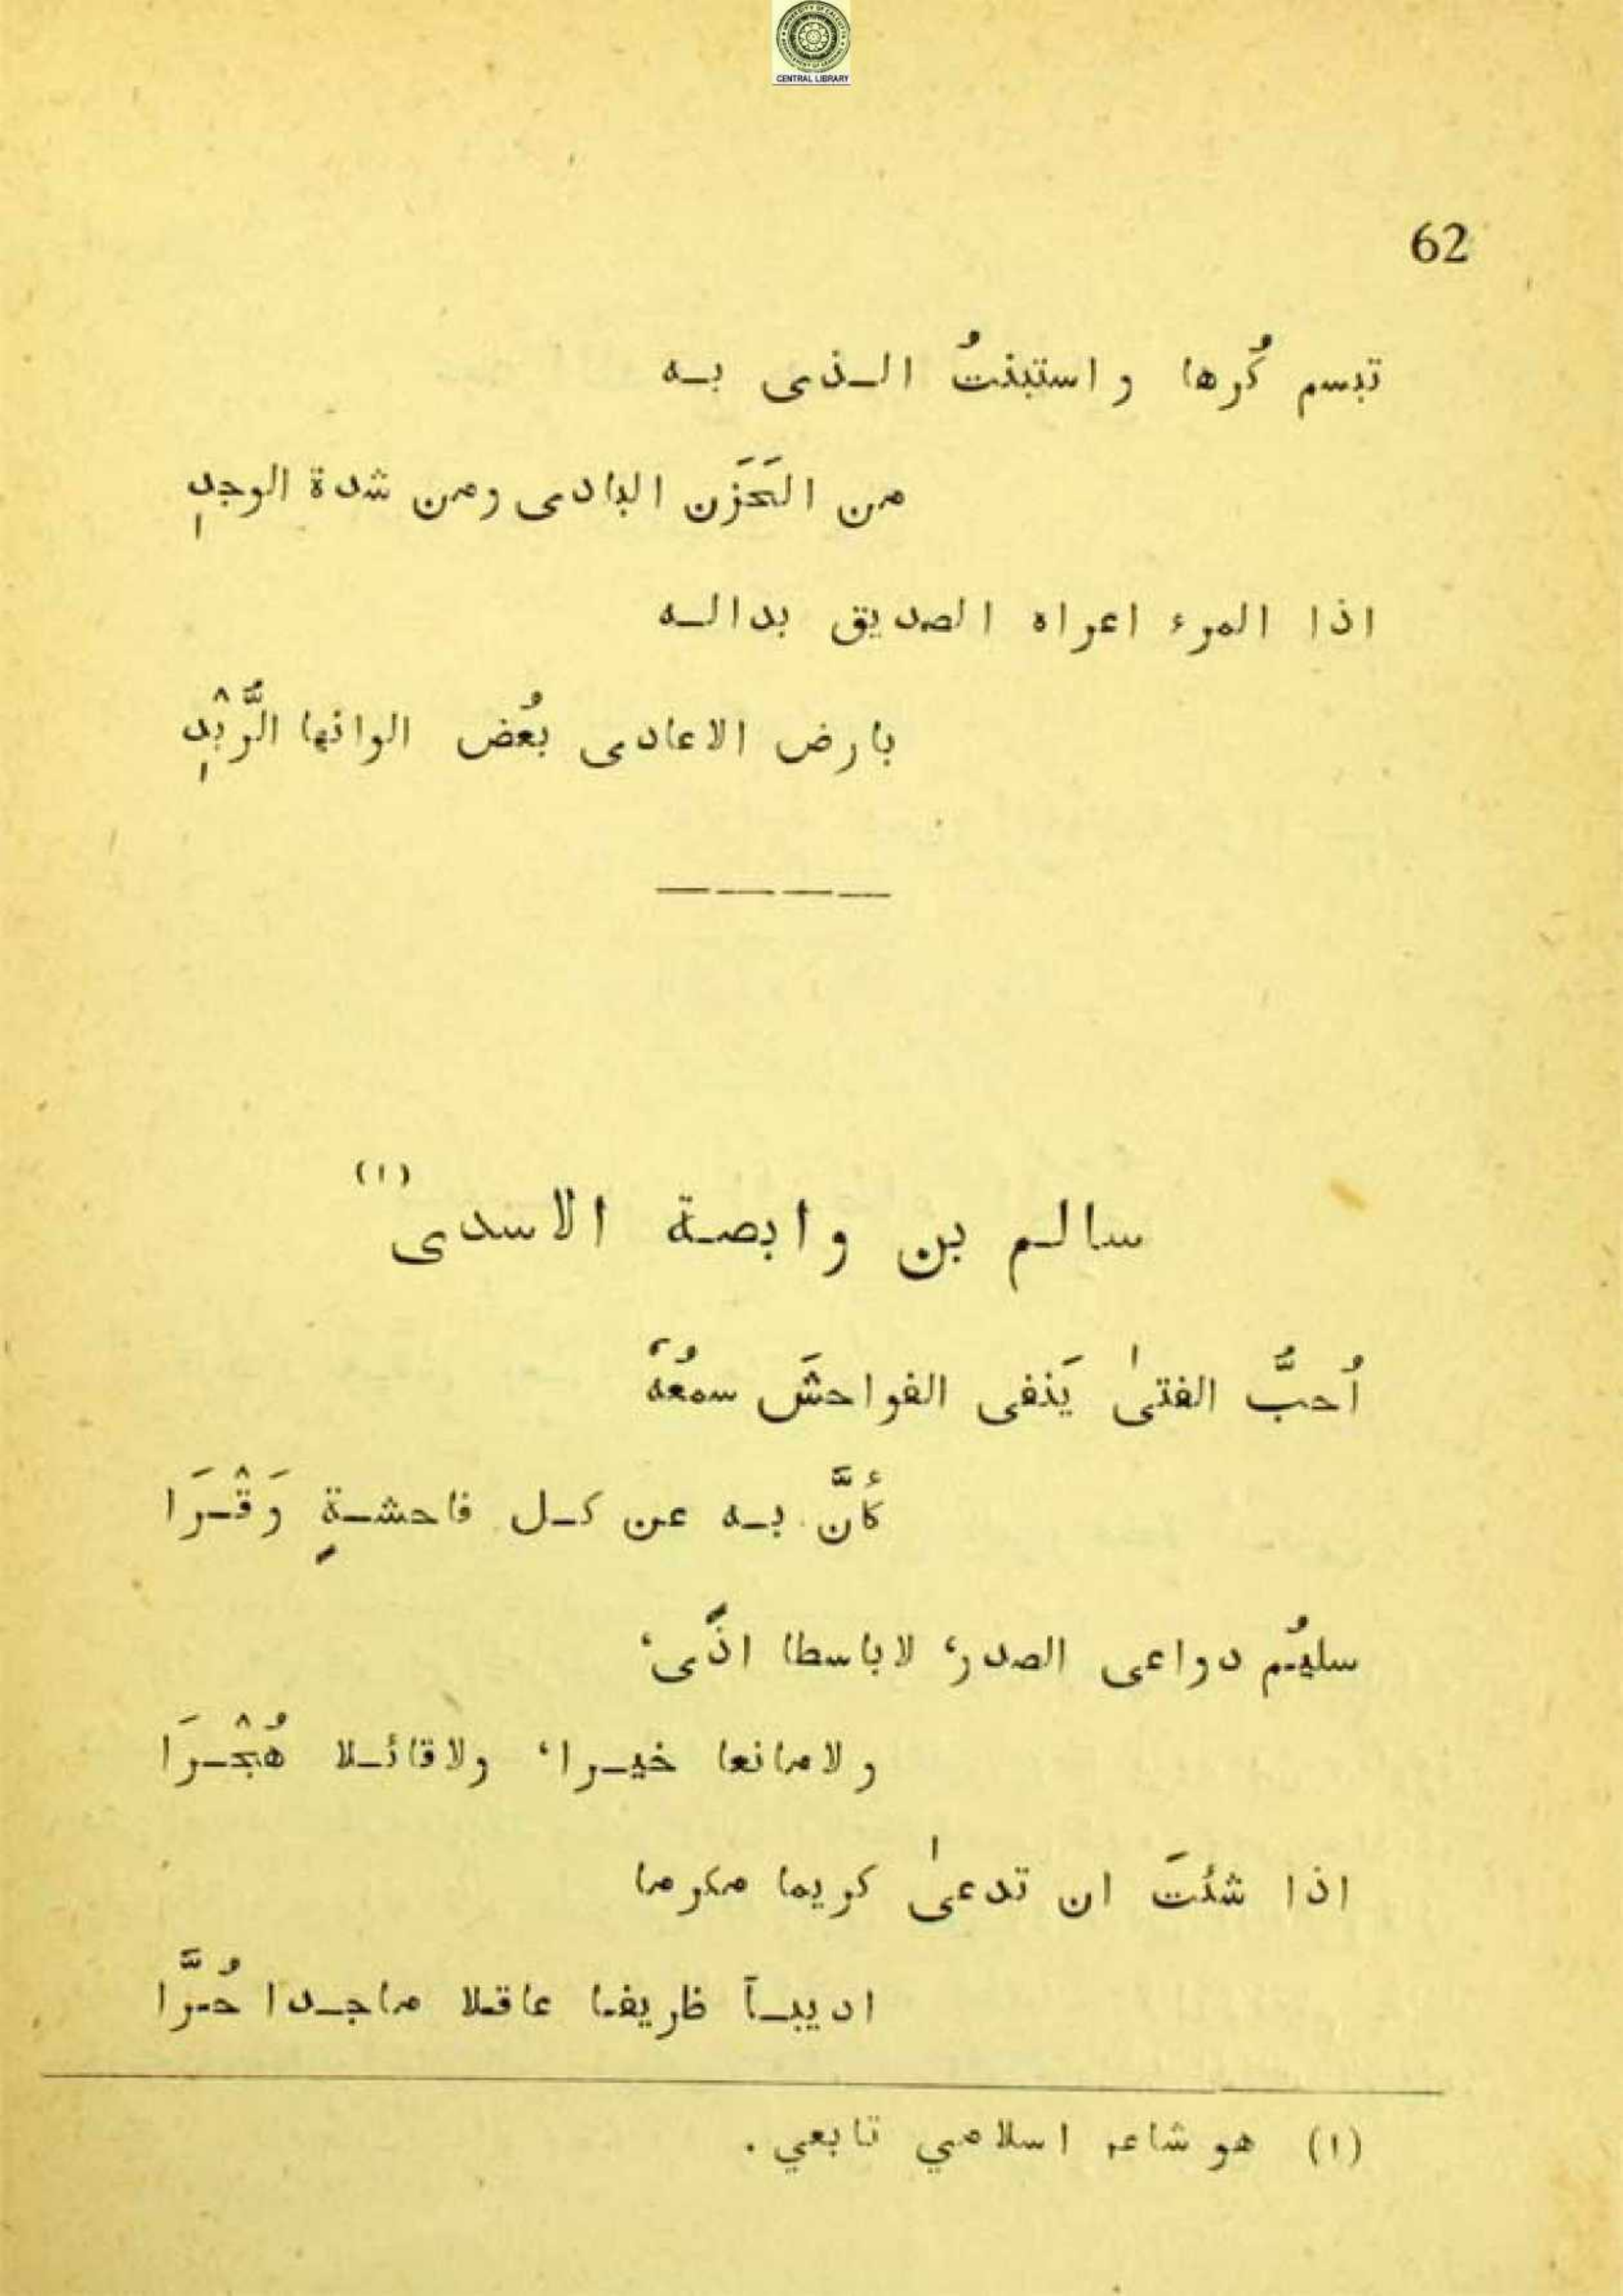 CENTRAL LIBRARY
62
تبسم كُرها و استبنتُ الـذى بـه
من الحَزَن البادى ومن شدة الوجدِ
اذا المرء اعراه الصديق بدالـه
بارض الاعادى بعُض الوانها الرُّبْدِ
سالـم بن وابصـة الاسدى (١)
اُحبُّ الفتىٰ يَنفى الفواحشَ سمعُهٗ
كأنَّ بـه عن كـل فاحشـةٍ وَقْـرَا
سليمُ دواعى الصدر، لاباسطا اذًى،
ولامانعا خيـرا، ولاقائـلا هُجْـرَا
اذا شئتَ ان تدعىٰ كريما مكرما
اديبـاً ظريفا عاقلا ماجـدا حُرَّا
(١) هو شاعر اسلامي تابعي .